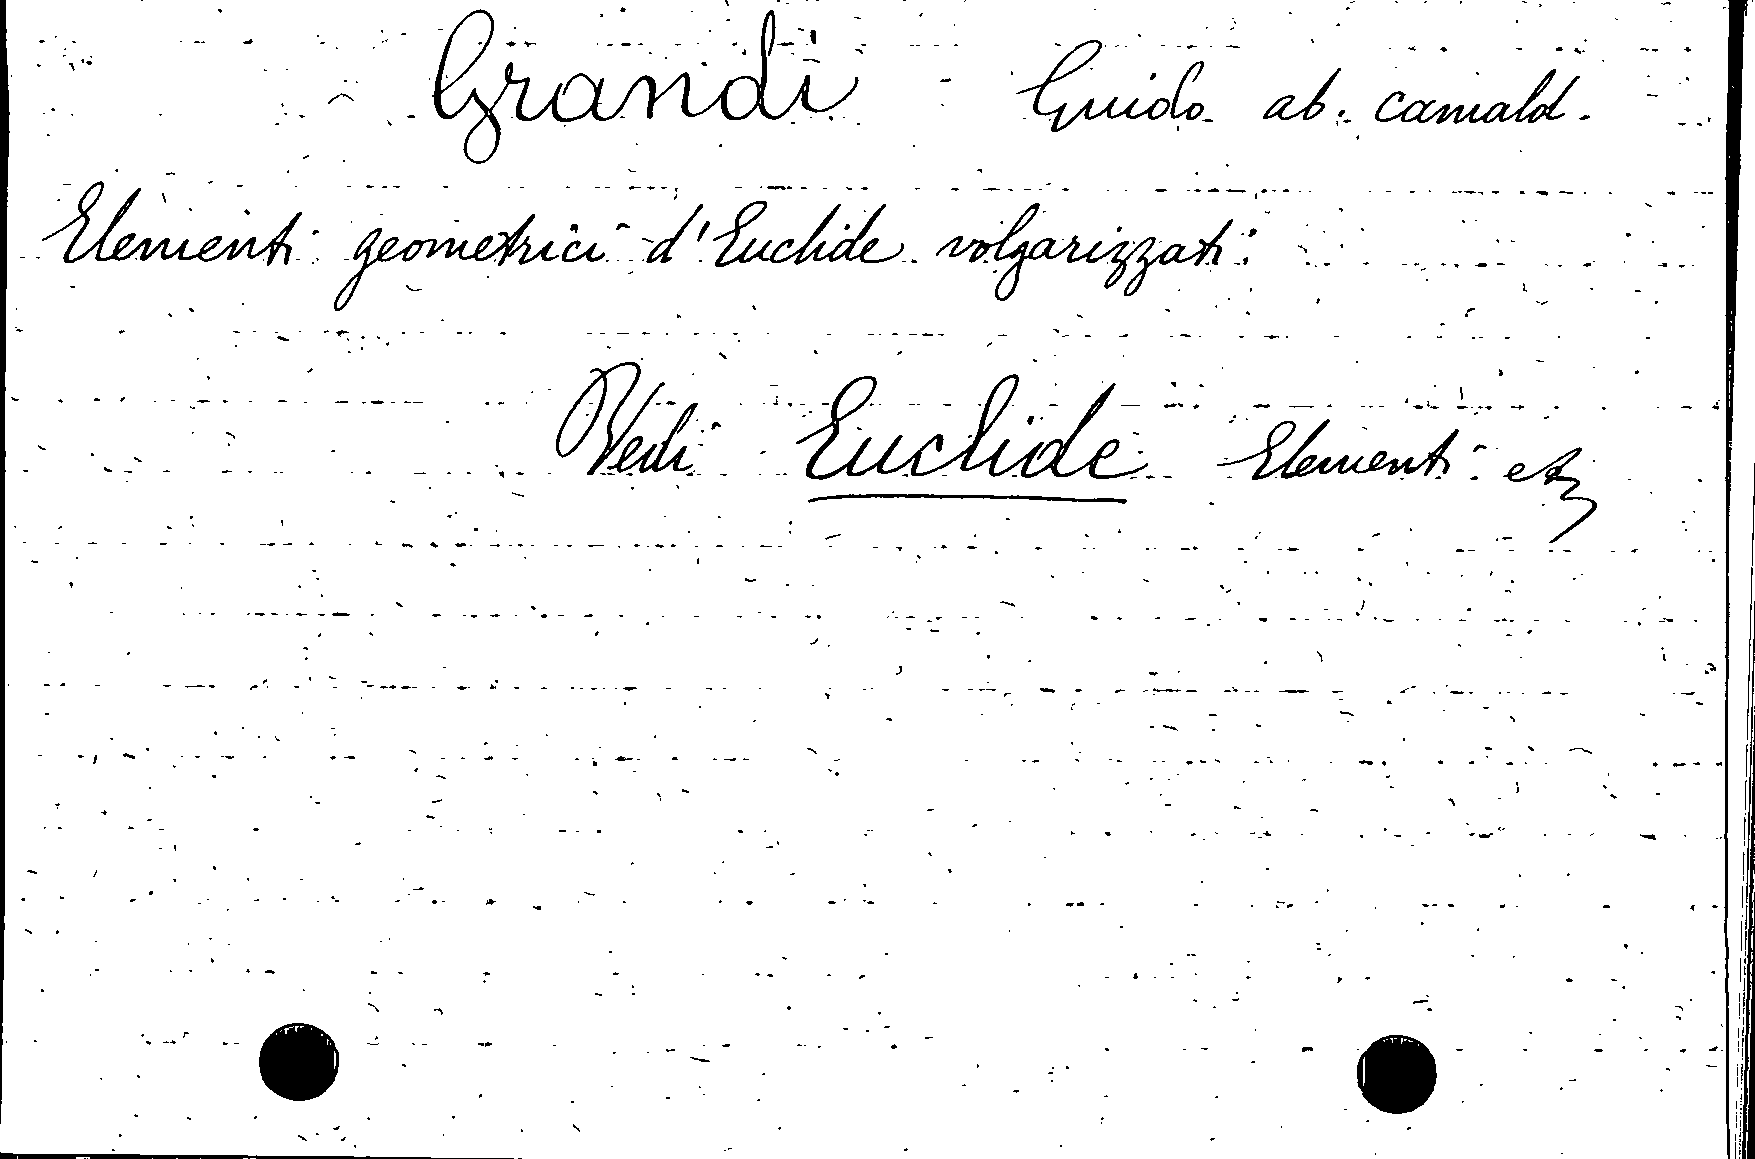 Grandi Guido ab. camald.
Elementi geometrici d'Euclide volgarizzati.
Vedi Euclide Elementi etc